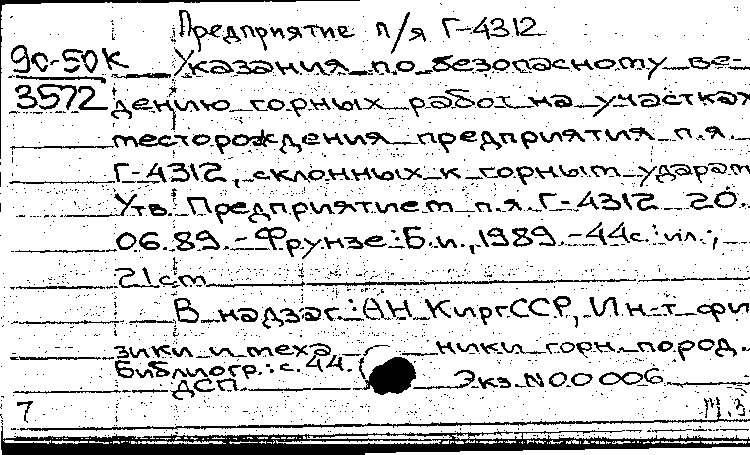 Предприятие п/я Г-4312
90-50К Указания по безопасному ве-
3572 дению горных работ на участках
месторождения предприятия п.я.
Г-4312, склонных к горным ударам
Утв. Предприятием п.я. Г-4312 20.
06.89.-Фрунзе: Б.и., 1989.-44с.:ил.;
21см
В надзаг.: АН КиргССР, Ин-т фи
зики и меха ники горн. пород.
Библиогр.: с. 44.
ДСП Экз. N00006
7